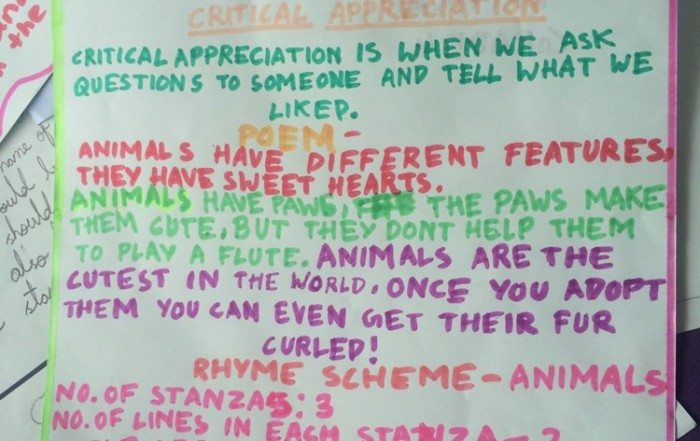 CRITICAL APPRECIATION
CRITICAL APPRECIATION IS WHEN WE ASK
QUESTIONS TO SOMEONE AND TELL WHAT WE
LIKED.
POEM-
ANIMALS HAVE DIFFERENT FEATURES,
THEY HAVE SWEET HEARTS.
ANIMALS HAVE PAWS, THE PAWS MAKE
THEM CUTE, BUT THEY DONT HELP THEM
TO PLAY A FLUTE. ANIMALS ARE THE
CUTEST IN THE WORLD, ONCE YOU ADOPT
THEM YOU CAN EVEN GET THEIR FUR
CURLED!
RHYME SCHEME-ANIMALS
NO. OF STANZAS: 3
NO. OF LINES IN EACH STANZA-2
the
name of
should
also